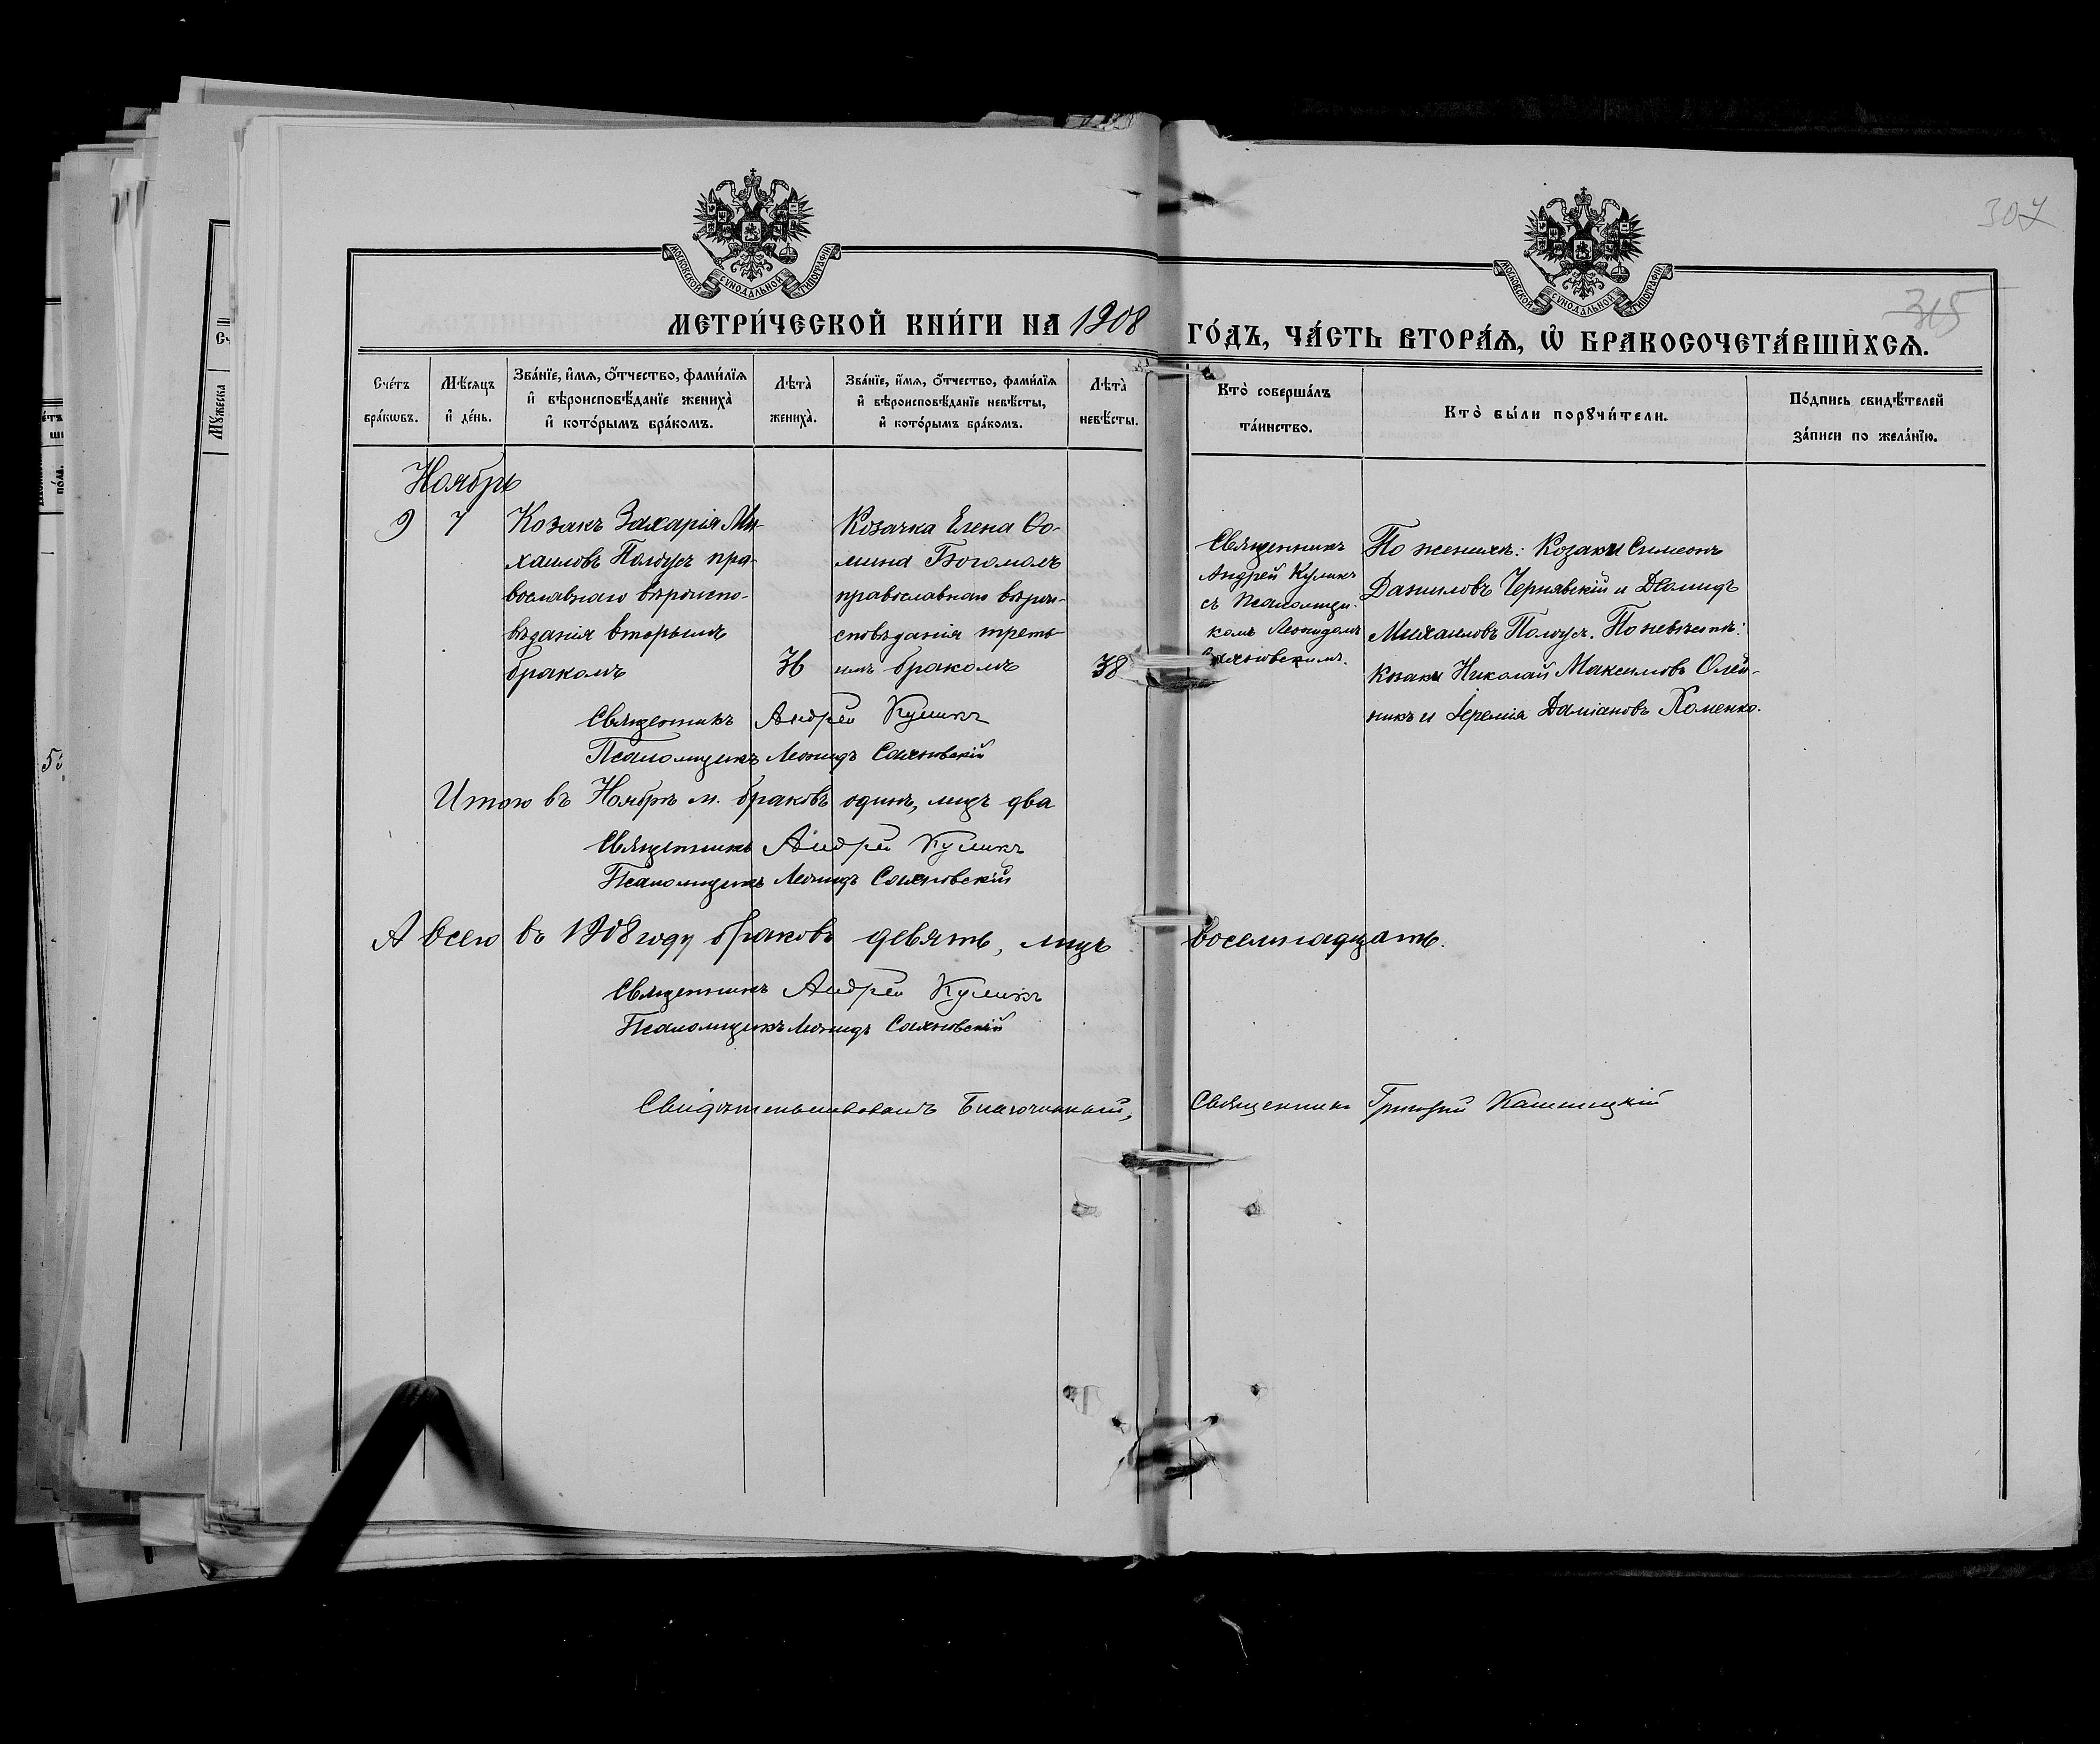 307
315
МОСКОВСКОЙ СѴНОДАЛЬНОЙ ТИПОГРАФІИ
МОСКОВСКОЙ СѴНОДАЛЬНОЙ ТИПОГРАФІИ
МЕТРИ́ЧЕСКОЙ КНИ́ГИ НА 1908 ГО́ДЪ, ЧА́СТЬ ВТОРА́Ѧ, Ѡ҆ БРАКОСОЧЕТА́ВШИХСѦ.
Сче́тъ бра́кѡвъ.
Мѣ́сяцъ и҆ де́нь.
Зва́нїе, и҆́мѧ, ѻ҆́тчество, фами́лїѧ и҆ вѣроисповѣ́данїе жениха̀ и҆ кото́рымъ бра́комъ.
Лѣта̀ жениха̀.
Зва́нїе, и҆́мѧ, ѻ҆́тчество, фами́лїѧ и҆ вѣроисповѣ́данїе невѣ́сты, и҆ кото́рымъ бра́комъ.
Лѣта̀ невѣ́сты.
Кто̀ соверша́лъ та́инство.
Кто̀ бы́ли порꙋчи́тели.
По́дпись свидѣ́телей за́писи по жела́нїю.
Ноябрь
9
7
Козакъ Захарія Ми-
хаиловъ Полоусъ пра-
вославнаго вѣроиспо-
вѣданія вторымъ
бракомъ
36
Козачка Елена Ѳо-
мина Богомолъ
православнаго вѣрои-
сповѣданія треть-
имъ бракомъ
38
Священникъ
Андрей Куликъ
съ псаломщи-
комъ Леонидомъ
Сахновскимъ.
По женихѣ: Козаки Симеонъ
Даниловъ Чернявскій и Діомидъ
Михаиловъ Полоусъ. По невѣстѣ:
Козаки Николай Максимовъ Олей-
никъ и Іеремія Даміановъ Хоменко.
Священникъ Андрей Куликъ
Псаломщикъ Леонидъ Сахновскій
Итого въ Ноябрѣ м. браковъ одинъ, лицъ два
Священникъ Андрей Куликъ
Псаломщикъ Леонидъ Сахновскій
А всего въ 1908 году браковъ девять, лицъ восемнадцать.
Священникъ Андрей Куликъ
Псаломщикъ Леонидъ Сахновскій
Свидѣтельствовалъ Благочинный, Священникъ Григорій